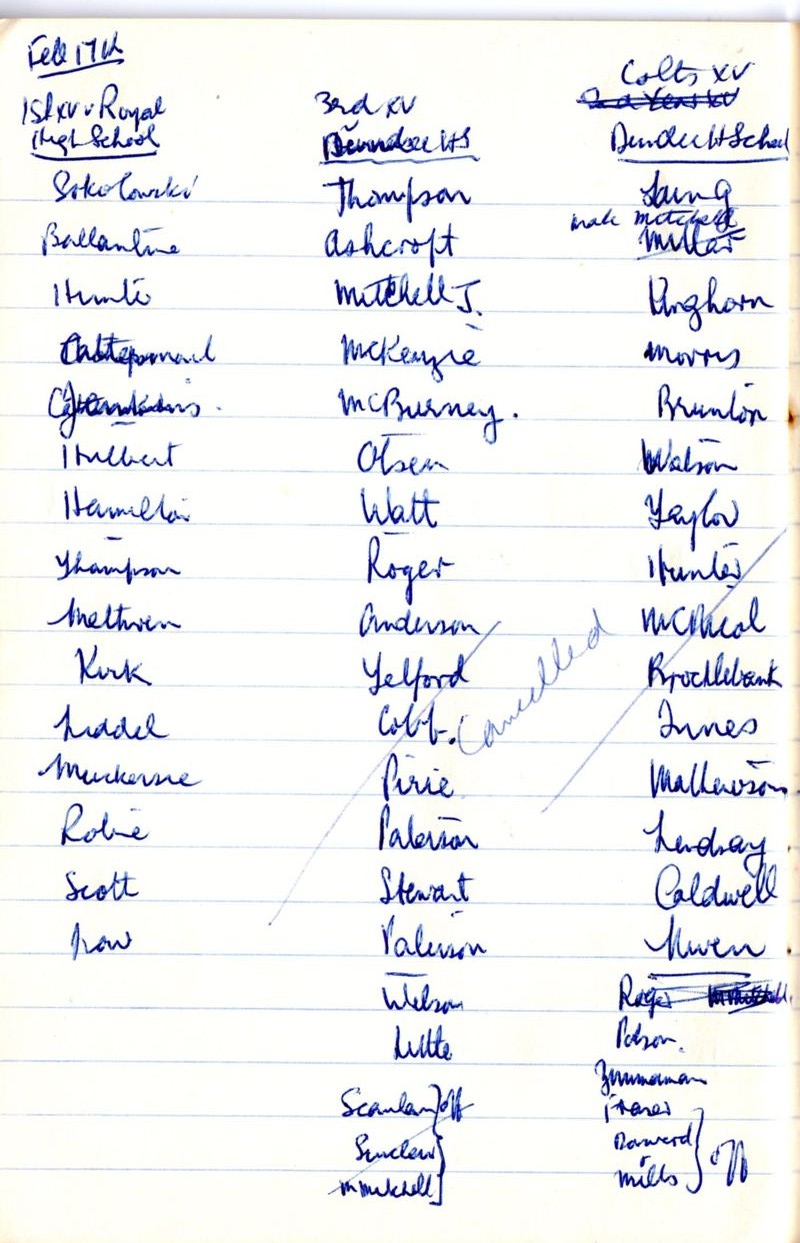 Feb 17th
1st XV v Royal
High School
Sokolowski
Ballantine
Hunter
Hulbert
Hamilton
Thompson
Methven
Kirk
Liddel
Muckersie
Robie
Scott
3rd XV
Dundee HS
Thompson
Ashcroft
Mitchell J.
McKenzie
McBurney.
Olsen
Watt
Roger
Anderson
Telford
Cobb.
Pirie
Paterson
Stewart
Paterson
Wilson
Little
Scanlan } off
Sinclair
M Mitchell
Cancelled
Colts XV
2nd Year XV
Dundee H School
Laing
Mitchell
Millar
Kinghorn
Morris
Brunton
Watson
Taylor
Hunter
McNeal
Brocklebank
Innes
Mathewson
Lindsay
Caldwell
Niven
Roger M Mitchell
Polson.
Zimmerman
Fraser
Dorward
Mills } off